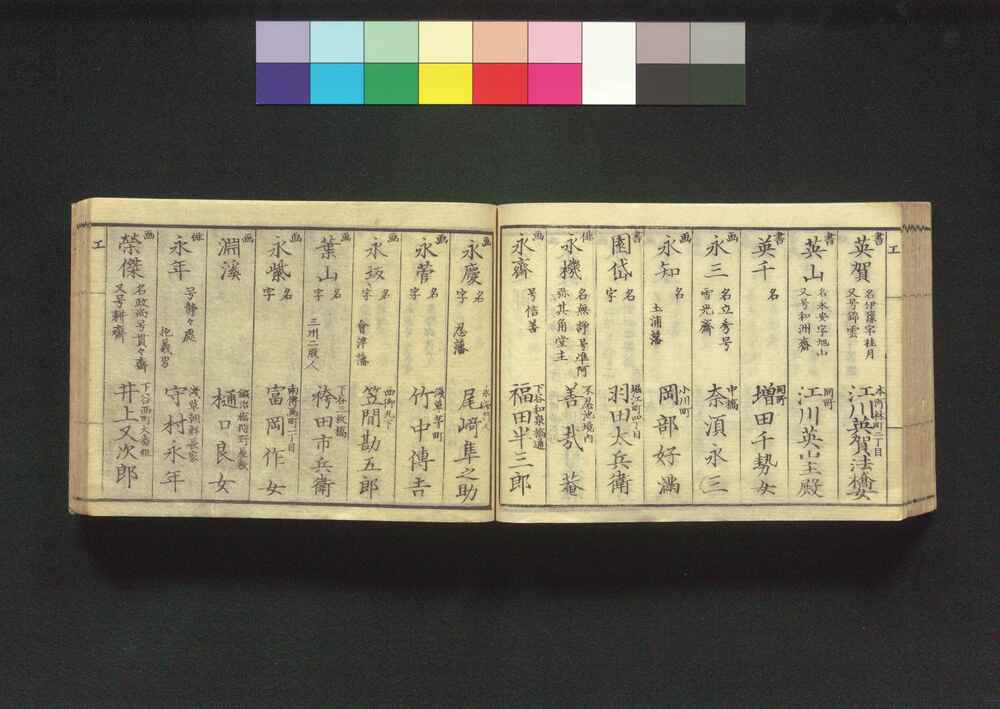 エ
書 英賀 名伊羅字桂月 又号錦雲 本所林町三丁目 江川英賀法橋女
書 英山 名永安字旭山 又号和洲齋 同所 江川英山主殿
書 英千 名 同町 増田千勢女
画 永三 名立秀号 雪光齋 中橋 奈須永三
画 永知 名 土浦藩 小川町 岡部好満
書 園岱 名 字 堀江町四丁目 羽田大兵衛
俳 永機 名無諍号準阿 弥其角堂主 不忍池境内 善哉菴
画 永齋 号信善 下谷和泉橋通 福田半三郎
画 永慶 名 字 忍藩 尾﨑隼之助
画 永菅 名 字 浅草茅町 竹中傳吉
画 永坂 名 字 會津藩 西御丸下 笠間勘五郎
画 葉山 名 字 三州二股人 下谷三枚橋 袴田市兵衛
画 永紫 名 字 南傳馬町二丁目 富岡作女
画 淵溪 鍛冶橋狩野差教 樋口良女
俳 永年 号静々處 花義男 浅草朝軒長家 守村永年
画 榮傑 名政高号貫々齋 又号耕齋 下谷西町大番組 井上又次郎
エ